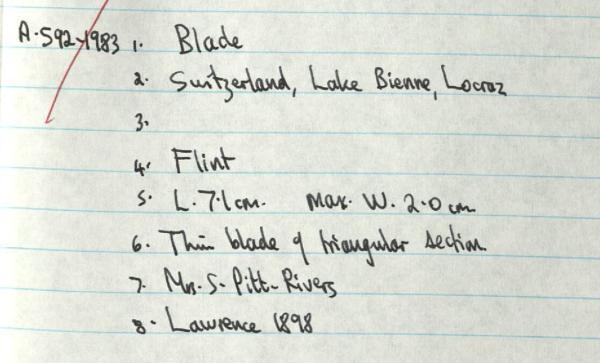 A.592-1983 1. Blade
2. Switzerland, Lake Bienne, Locraz
3.
4. Flint
5. L. 7.1cm. Max. W. 2.0 cm
6. Thin blade of triangular section
7. Mrs. S. Pitt-Rivers
8. Lawrence 1898